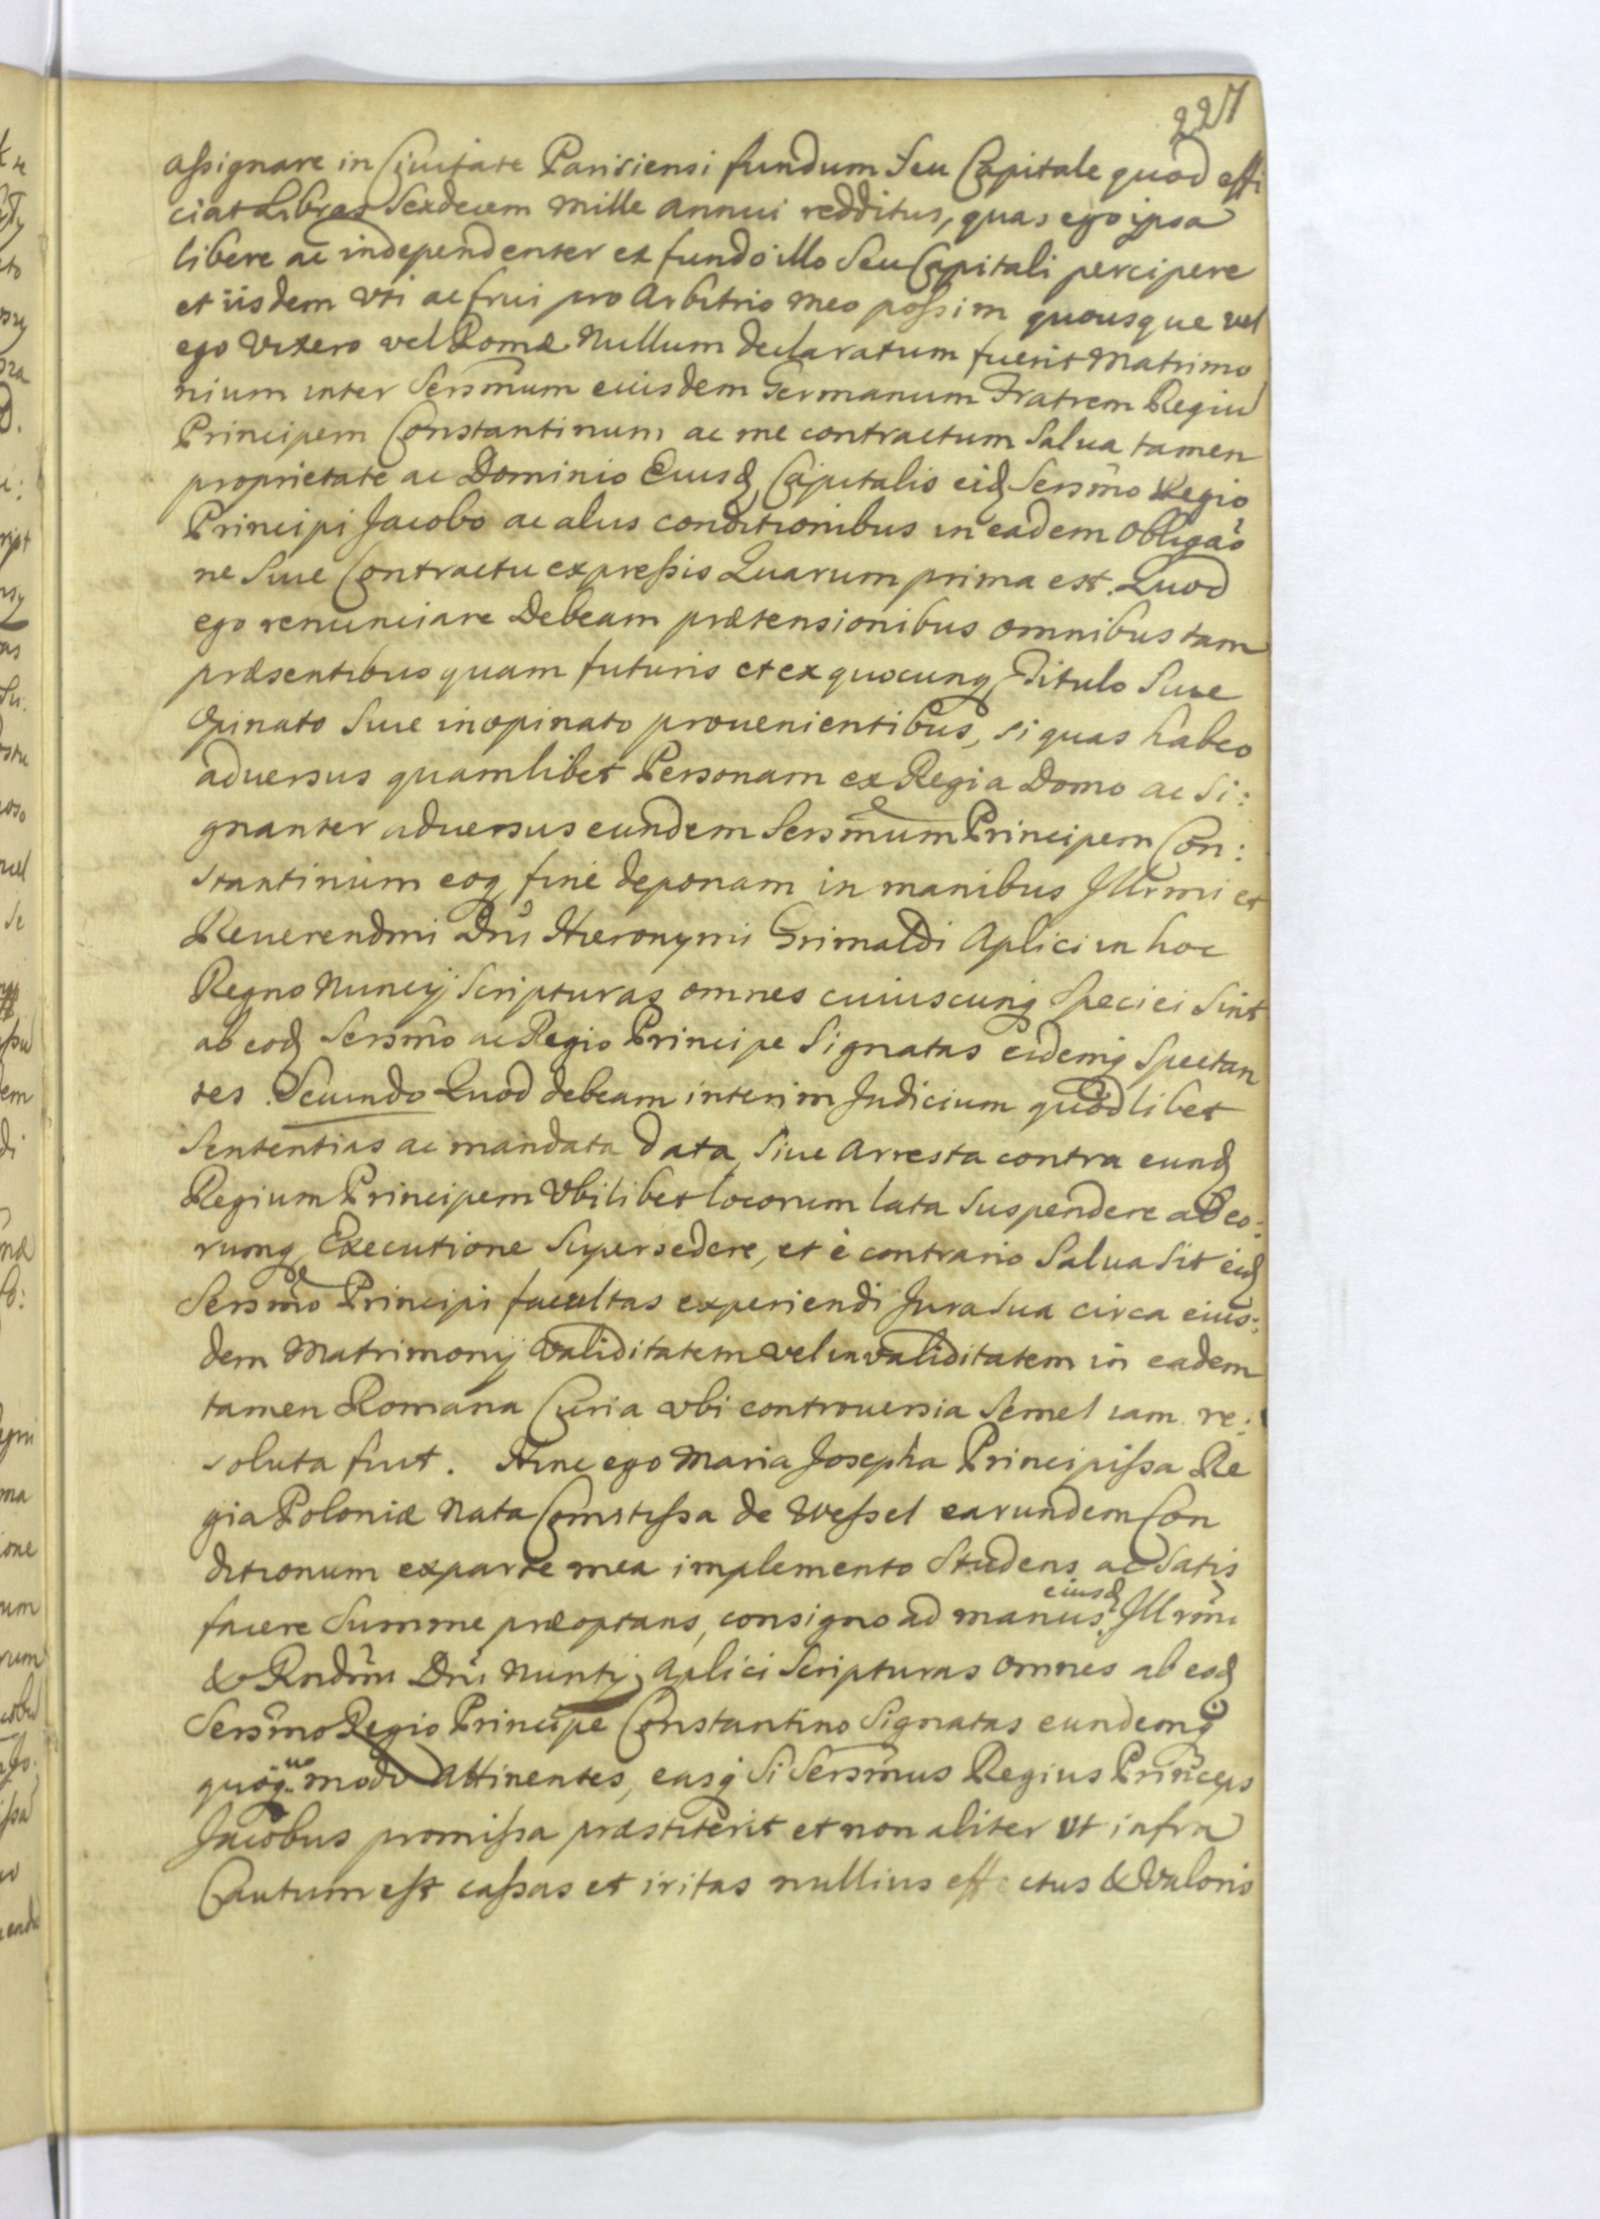 227
assignare in Ciuitate Parisiensi fundum Seu Capitale quod effi
ciat Libras Sexdecem mille annui redditus, quas ego ipsa
libere ac independenter ex fundo illo Seu Capitali percipere
et iisdem vti ac frui pro Arbitrio meo possim quousque vel
ego vixero vel Romæ Nullum declaratum fuerit Matrimo
nium inter Sersm̃um eiusdem Germanum Fratrem Regiu
Principem Constantinum ac me contractum Salua tamen
proprietate ac Dominio Eiusd. Capitalis eid. Sersm̃o Regio
Principi Jacobo ac alus conditionibus in eadem Obligao
ne Siue Contractu expressis Quarum prima est. Quod
ego renunciare Debeam prætensionibus omnibus tam
præsentibus quam futuris et ex quocunq Titulo Siue
Opinato Siue inopinato prouenientibus, si quas habeo
aduersus quamlibet Personam ex Regia Domo ac Si:
gnanter aduersus eundem Sersm̃um Principem Con:
stantinum eoq fine deponam in manibus Jllrmi et
Reuerendmi Dñi Hieronymi Grimaldi Aplici in hoc
Regno Nuncij Scripturas omnes cuiuscunq Speciei Sint
ab eod. Sersm̃o ac Regio Principe Signatas eidemq Spectan
tes. Secundo Quod debeam interim Judicium quodlibet
Sententias ac mandata data, Siue Arresta contra eund.
Regium Principem Vbilibet locorum lata Suspendere ab eo:
rumq Executione Supersedere, et è contrario Salua Sit eid.
Sersm̃o Principi facultas experiendi Jura Sua circa eius:
dem Matrimonij validitatem vel invaliditatem in eadem
tamen Romana Curia vbi controuersia Semel iam re:
soluta fuit. Hinc ego Maria Josepha Principissa Re
gia Poloniæ Nata Comitissa de Wessel earundem Con
ditionum ex parte mea implemento Studens ac Satis
facere Summe præoptans, consigno ad manus eiusd. Jllrm̃i
& Rndm̃i Dñi Nuntij Aplici Scripturas omnes ab eod.
Sersm̃o Regio Principe Constantino Signatas eundemq
quoq uo modo Attinentes, easq Si Sersm̃us Regius Princeps
Jacobus promissa præstiterit et non aliter vt infra
Cautum est cassas et iritas nullius effectus & valoris